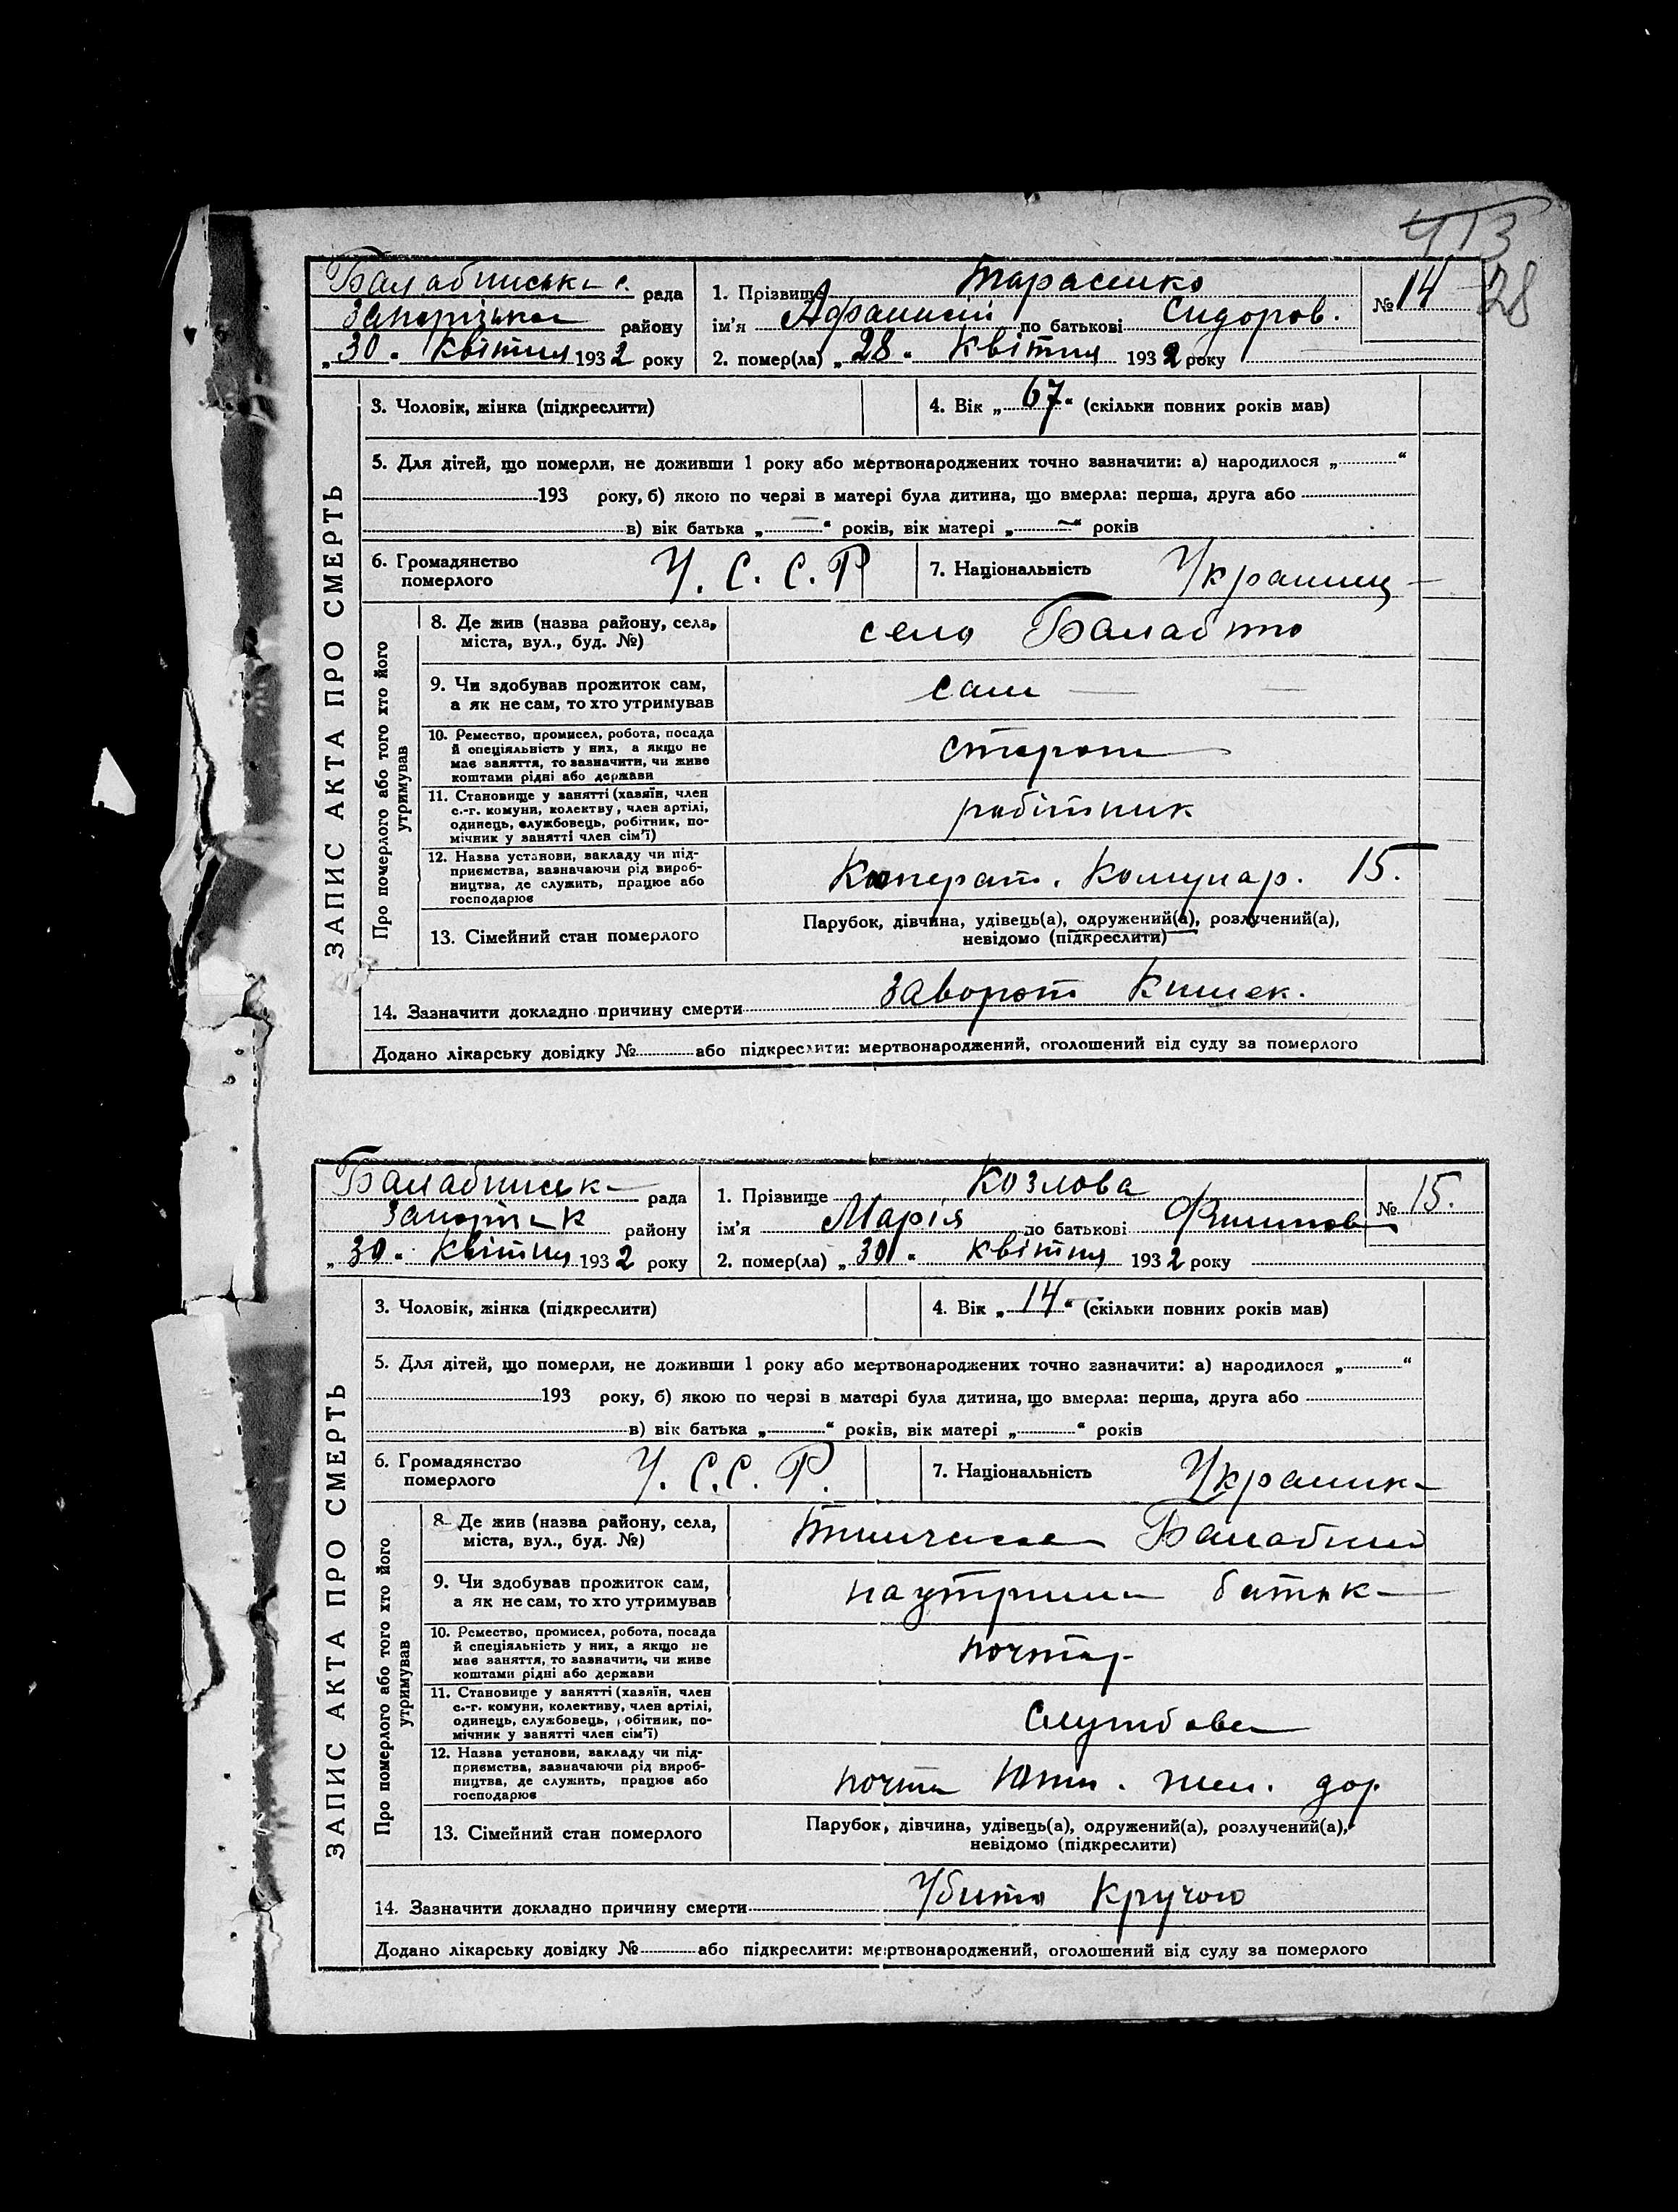 413
28
Балабинська с. рада
Запорізького району
„30“ Квітня 1932 року
1. Прізвище Тарасенко
ім’я Афанасій по батькові Сидоров.
№ 14
2. помер(ла) „28“ Квітня 1932 року
ЗАПИС АКТА ПРО СМЕРТЬ
3. Чоловік, жінка (підкреслити)
4. Вік „67“ (скільки повних років мав)
5. Для дітей, що померли, не доживши 1 року або мертвонароджених точно зазначити: а) народилося „ “
193 року, б) якою по черзі в матері була дитина, що вмерла: перша, друга або
в) вік батька „—“ років, вік матері „—“ років
6. Громадянство
померлого
У. С. С. Р
7. Національність Украинц
Про померлого або того хто його
утримував
8. Де жив (назва району, села,
міста, вул., буд. №)
село Балабино
9. Чи здобував прожиток сам,
а як не сам, то хто утримував
сам
10. Ремество, промисел, робота, посада
й спеціяльність у них, а якщо не
має заняття, то зазначити, чи живе
коштами рідні або держави
сторож
11. Становище у занятті (хазяїн, член
с.-г. комуни, колектву, член артілі,
одинець, службовець, робітник, по-
мічник у занятті член сім’ї)
робітник
12. Назва установи, закладу чи під-
приємства, зазначаючи рід вироб-
ництва, де служить, працює або
господарює
Коперат. Комунар. 15.
13. Сімейний стан померлого
Парубок, дівчина, удівець(а), одружений(а), розлучений(а),
невідомо (підкреслити)
14. Зазначити докладно причину смерти Заворот Кишек.
Додано лікарську довідку № або підкреслити: мертвонароджений, оголошений від суду за померлого
Балабинськ рада
району
„30“ Квітня 1932 року
1. Прізвище Козлова
ім’я Марія по батькові
№ 15.
2. помер(ла) „30“ Квітня 1932 року
ЗАПИС АКТА ПРО СМЕРТЬ
3. Чоловік, жінка (підкреслити)
4. Вік „14“ (скільки повних років мав)
5. Для дітей, що померли, не доживши 1 року або мертвонароджених точно зазначити: а) народилося „ “
193 року, б) якою по черзі в матері була дитина, що вмерла: перша, друга або
в) вік батька „ “ років, вік матері „ “ років
6. Громадянство
померлого
У. С. С. Р.
7. Національність Украинк
Про померлого або того хто його
утримував
8. Де жив (назва району, села,
міста, вул., буд. №)
Балабино
9. Чи здобував прожиток сам,
а як не сам, то хто утримував
на утрим батьк
10. Ремество, промисел, робота, посада
й спеціяльність у них, а якщо не
має заняття, то зазначити, чи живе
коштами рідні або держави
почтар
11. Становище у занятті (хазяїн, член
с.-г. комуни, колективу, член артілі,
одинець, службовець, робітник, по-
мічник у занятті член сім’ї)
Службове
12. Назва установи, закладу чи під-
приємства, зазначаючи рід вироб-
ництва, де служить, працює або
господарює
почта жел. дор
13. Сімейний стан померлого
Парубок, дівчина, удівець(а), одружений(а), розлучений(а),
невідомо (підкреслити)
14. Зазначити докладно причину смерти Убито Кручою
Додано лікарську довідку № або підкреслити: мертвонароджений, оголошений від суду за померлого